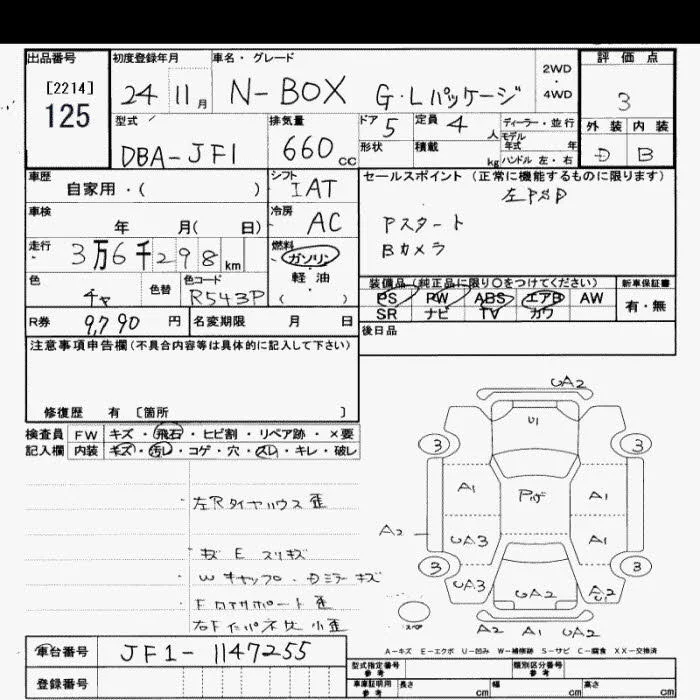 出品番号 初度登録年月 車名・グレード 評価点
[2214] 125 24 11月 N-BOX G・Lパッケージ 2WD・4WD 3
型式 DBA-JF1 排気量 660cc ドア 5 定員 4人 ディーラー・並行
形状 積載 kg モデル年式 年 ハンドル 左・右
外装 内装
D B
車歴 自家用・( ) シフト IAT セールスポイント (正常に機能するものに限ります)
左PSD
車検 年 月( 日) 冷房 AC
Pスタート
Bカメラ
走行 3万6千298km 燃料 ガソリン・軽油 ( )
色 チャ 色替 色コード R543P
装備品 (純正品に限り○をつけてください) 新車保証書
PS PW ABS エアB AW 有・無
SR ナビ TV カワ
R券 9,790円 名変期限 月 日 後日品
注意事項申告欄(不具合内容等は具体的に記入して下さい)
修復歴 有 [箇所 ]
検査員記入欄 FW キズ・飛石・ヒビ割・リペア跡・×要
内装 キズ・汚レ・コゲ・穴・スレ・キレ・破レ
・左Rタイヤハウス歪
・キズ E スリキズ
・Wキャップ・Dミラーキズ
UA2
U1
3 3
A1 A1
A2 UA3 A1
3 3
UA3 UA2
A2 A1 UA2
スペア
A-キズ E-エクボ U-凹み W-補修跡 S-サビ C-腐食 XX-交換済
車台番号 JF1-1147255
登録番号
型式指定番号 参考 類別区分番号 参考
車庫証明用 参考 長さ cm 幅 cm 高さ cm